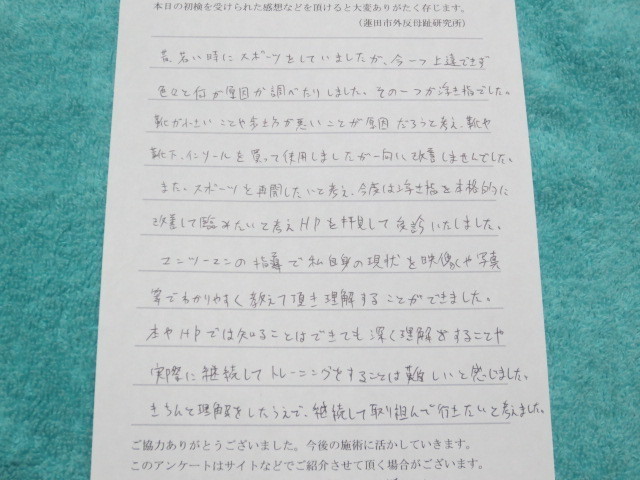 本日の初検を受けられた感想などを頂けると大変ありがたく存じます。
(蓮田市外反母趾研究所)
昔、若い時にスポーツをしていましたが、今一つ上達できず
色々と何が原因か調べたりしました。その一つが浮き指でした。
靴が小さいことや歩き方が悪いことが原因だろうと考え、靴や
靴下、インソールを買って使用しましたが一向に改善しませんでした。
また、スポーツを再開したいと考え、今度は浮き指を本格的に
改善して臨みたいと考えHPを拝見して受診いたしました。
マンツーマンの指導で私自身の現状を映像や写真
等でわかりやすく教えて頂き理解することができました。
本やHPでは知ることはできても深く理解することや
実際に継続してトレーニングをすることは難しいと感じました。
きちんと理解をしたうえで、継続して取り組んで行きたいと考えました。
ご協力ありがとうございました。今後の施術に活かしていきます。
このアンケートはサイトなどでご紹介させて頂く場合がございます。